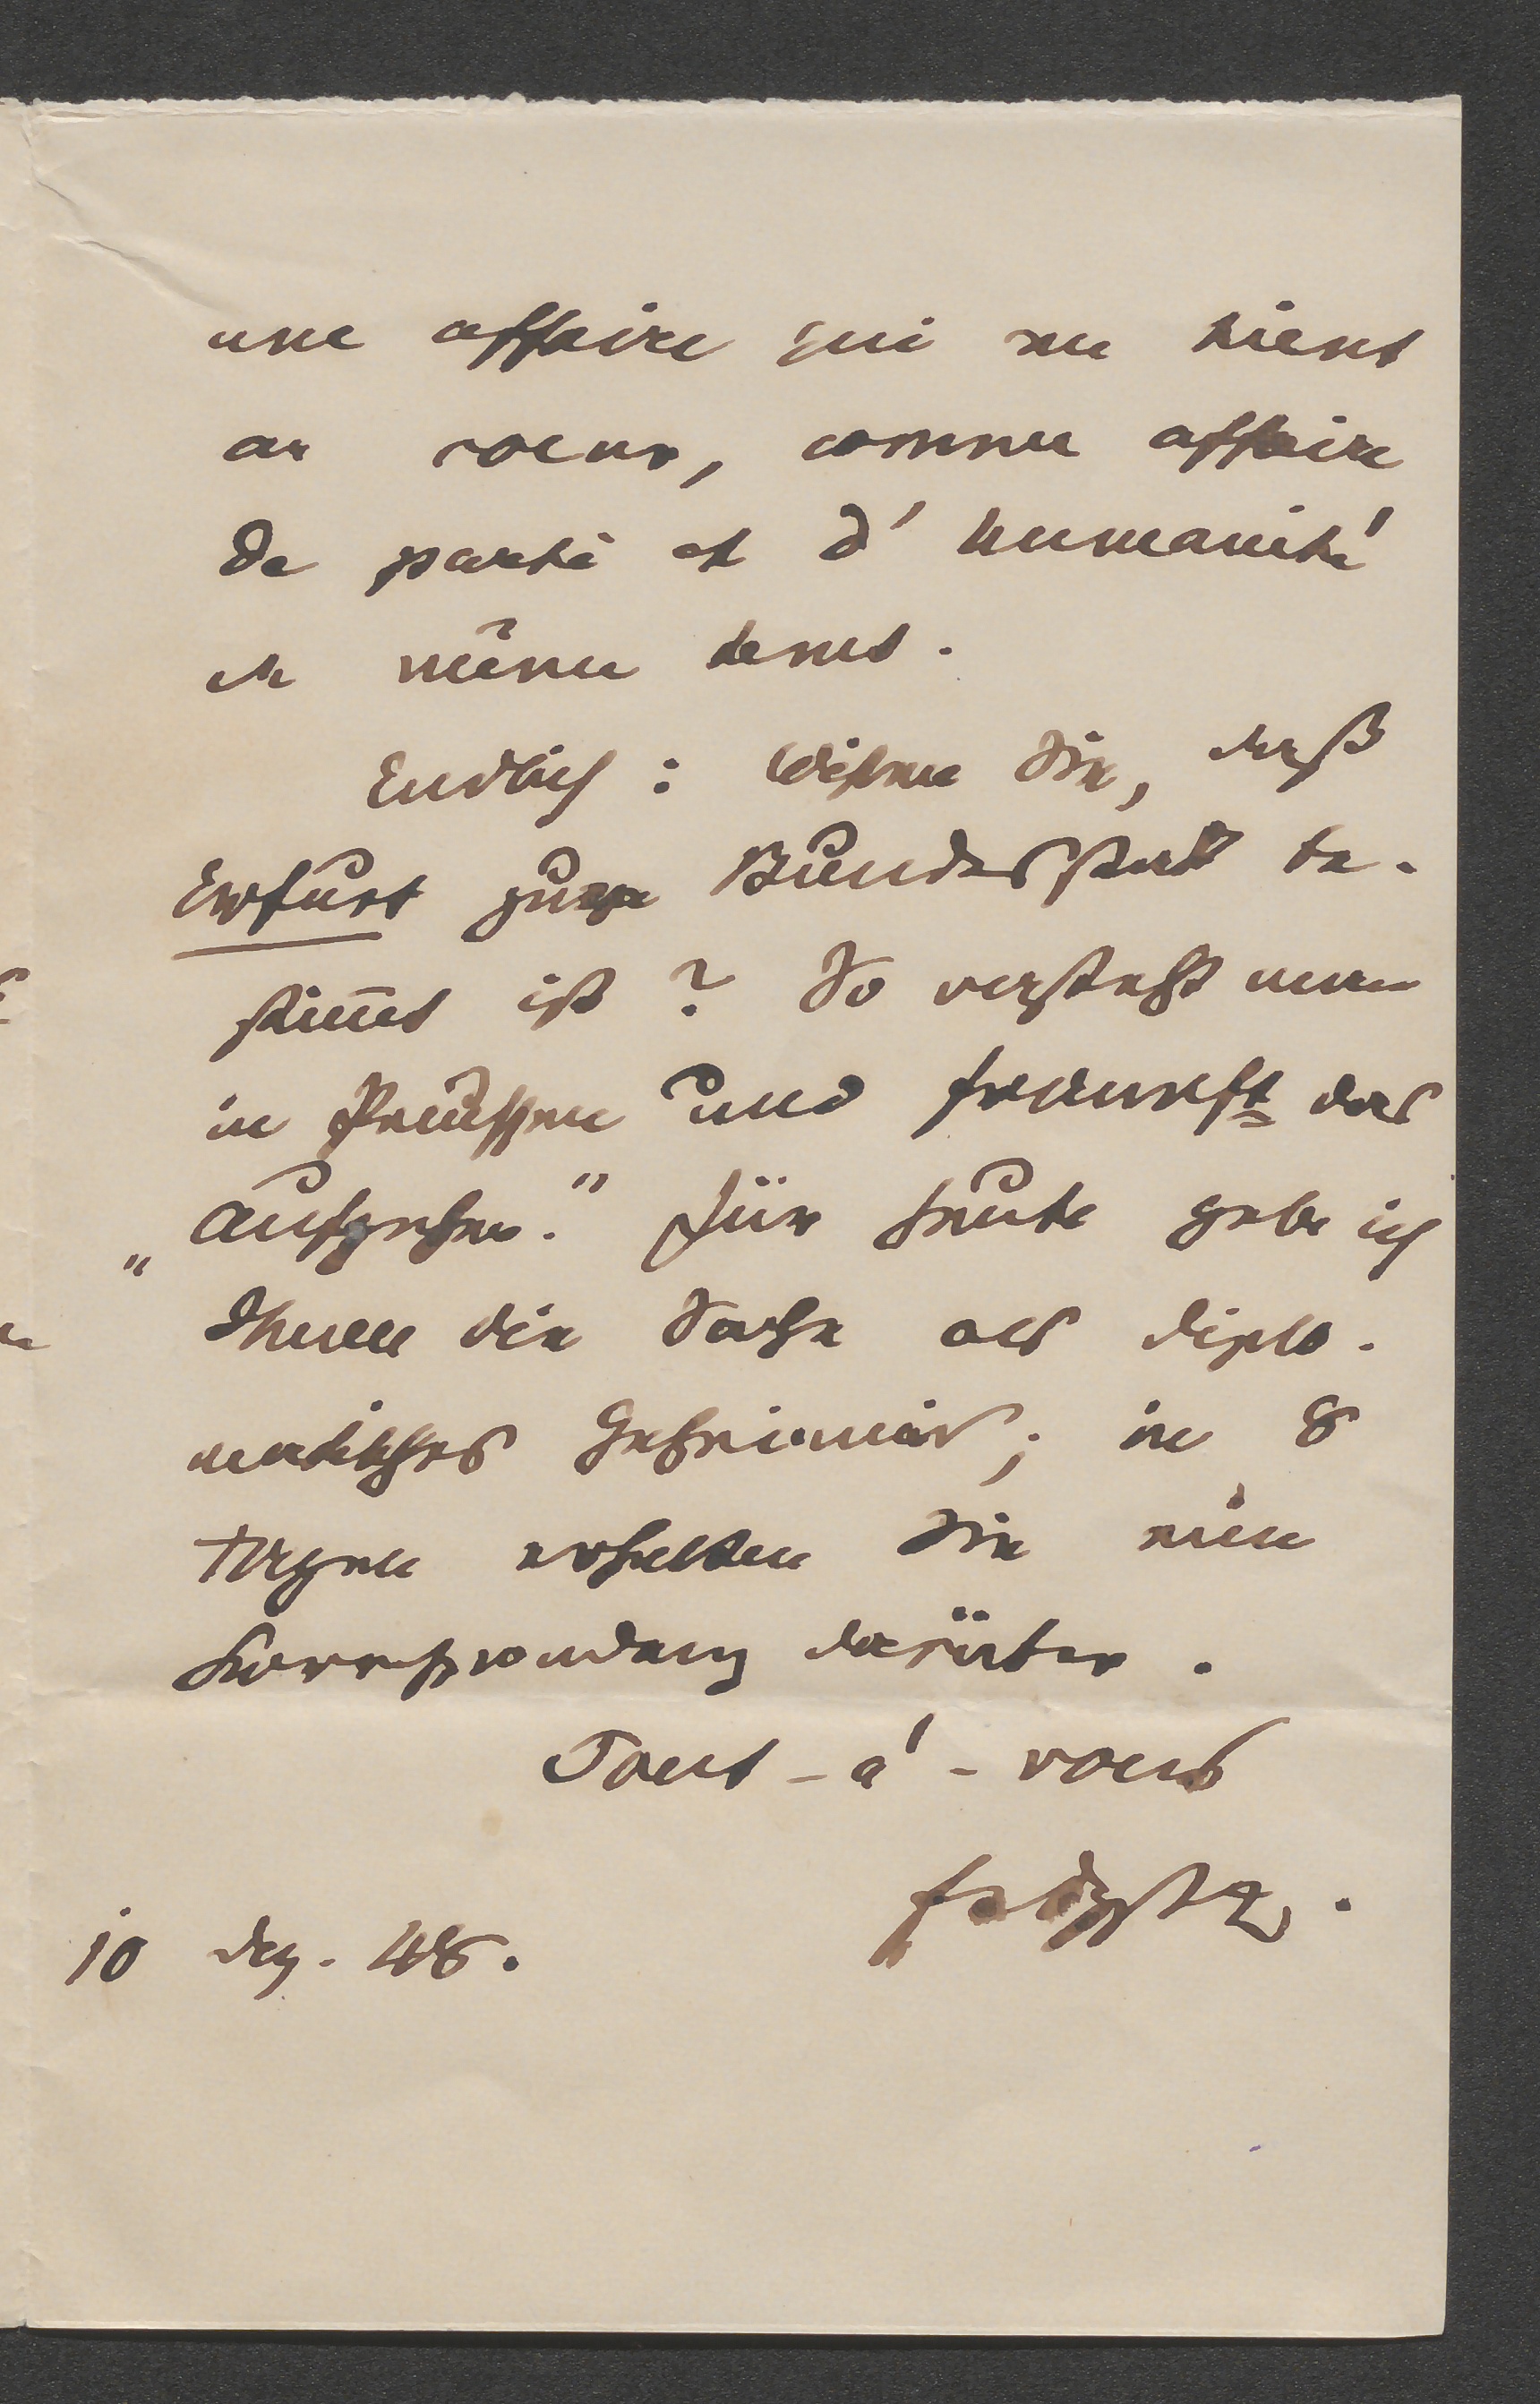 une affaire qui me tient
au coeur, comme affaire
de parti et d'humanité
en même tems.
Endlich: Wissen Sie, daß
Erfurt zur Bundesstadt be-
stim̅t ist? So versteht man
in Preußen und Frankft das
„Aufgehen." Für heute gebe ich
Ihnen die Sache als diplo-
matisches Geheimniß; in 8
Tagen erhalten Sie eine
Korrespondenz darüber.
Tout-à-vous
10 Dez. 48.